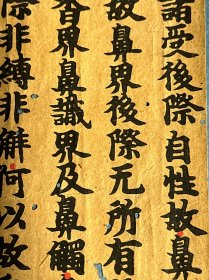 諸受後際自性故鼻
故鼻界後際无所有
香界鼻識界及鼻觸
際非縛非解何以故